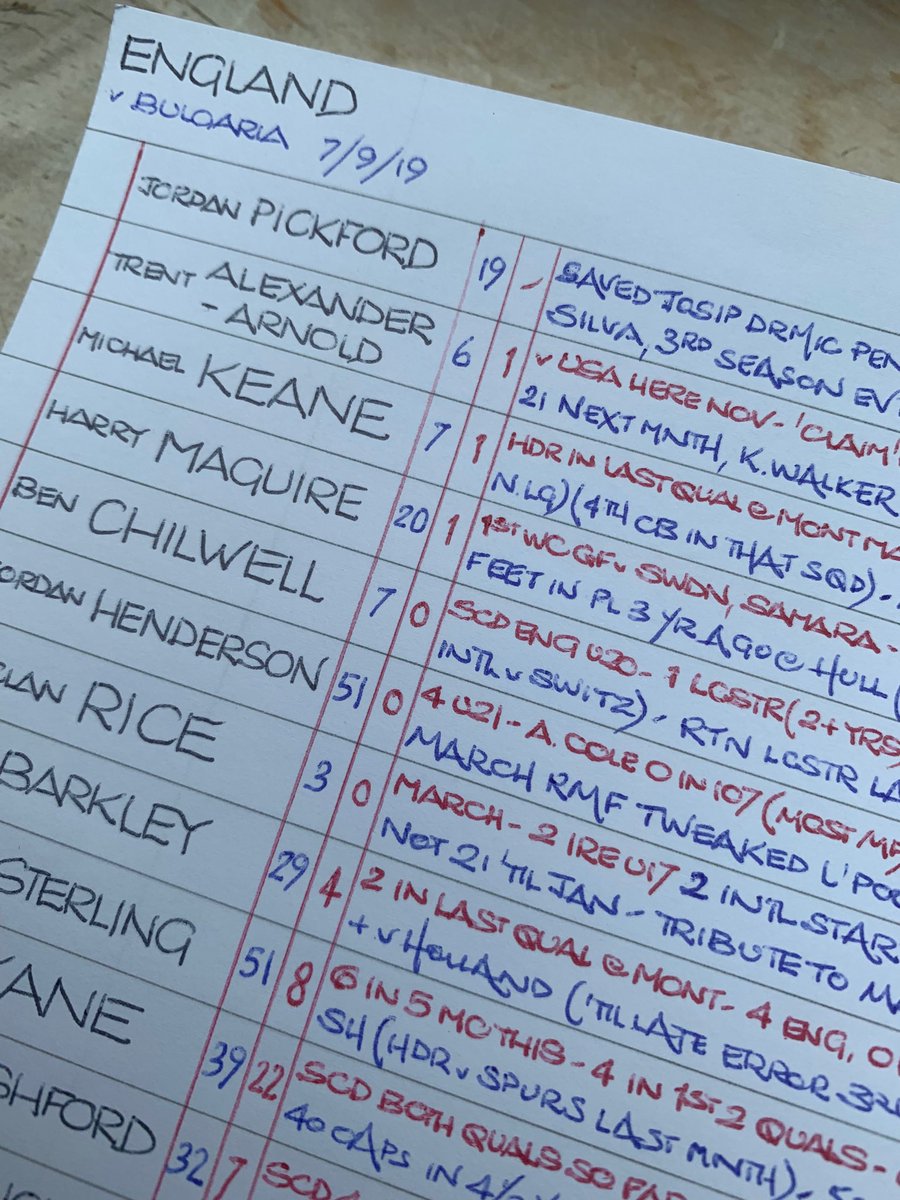 ENGLAND
v BULGARIA 7/9/19
JORDAN PICKFORD 19 - SAVED JOSIP DRMIC PEN
SILVA, 3RD SEASON EV
TRENT ALEXANDER
- ARNOLD 6 1 v USA HERE NOV - 'CLAIM'
21 NEXT MNTH, K. WALKER
MICHAEL KEANE 7 1 HDR IN LAST QUAL @ MONT MA
N.LG) (4TH CB IN THAT SQD) -
HARRY MAGUIRE 20 1 1ST WC GF v SWDN, SAMARA -
FEET IN PL 3 YR AGO @ HULL (
BEN CHILWELL 7 0 SCD ENG U20 - 1 LCSTR (2+YRS
INTL v SWITZ) - RTN LCSTR LA
ORDAN HENDERSON 51 0 4 U21 - A. COLE 0 IN 107 (MOST
MARCH RMF TWEAKED L'POO
CLAN RICE 3 0 MARCH - 2 IRE U17 2 INTL STAR
NOT 21 'TIL JAN - TRIBUTE TO MA
BARKLEY 29 4 2 IN LAST QUAL @ MONT - 4 ENG, 0
+ v HOLLAND ('TIL LATE ERROR 3RD
STERLING 51 8 6 IN 5 MO THIS - 4 IN 1ST 2 QUALS -
SH (HDR v SPURS LAST MNTH) -
KANE 39 22 SCD BOTH QUALS SO FAR
40 CAPS IN 4
SHFORD 32 7 SCD